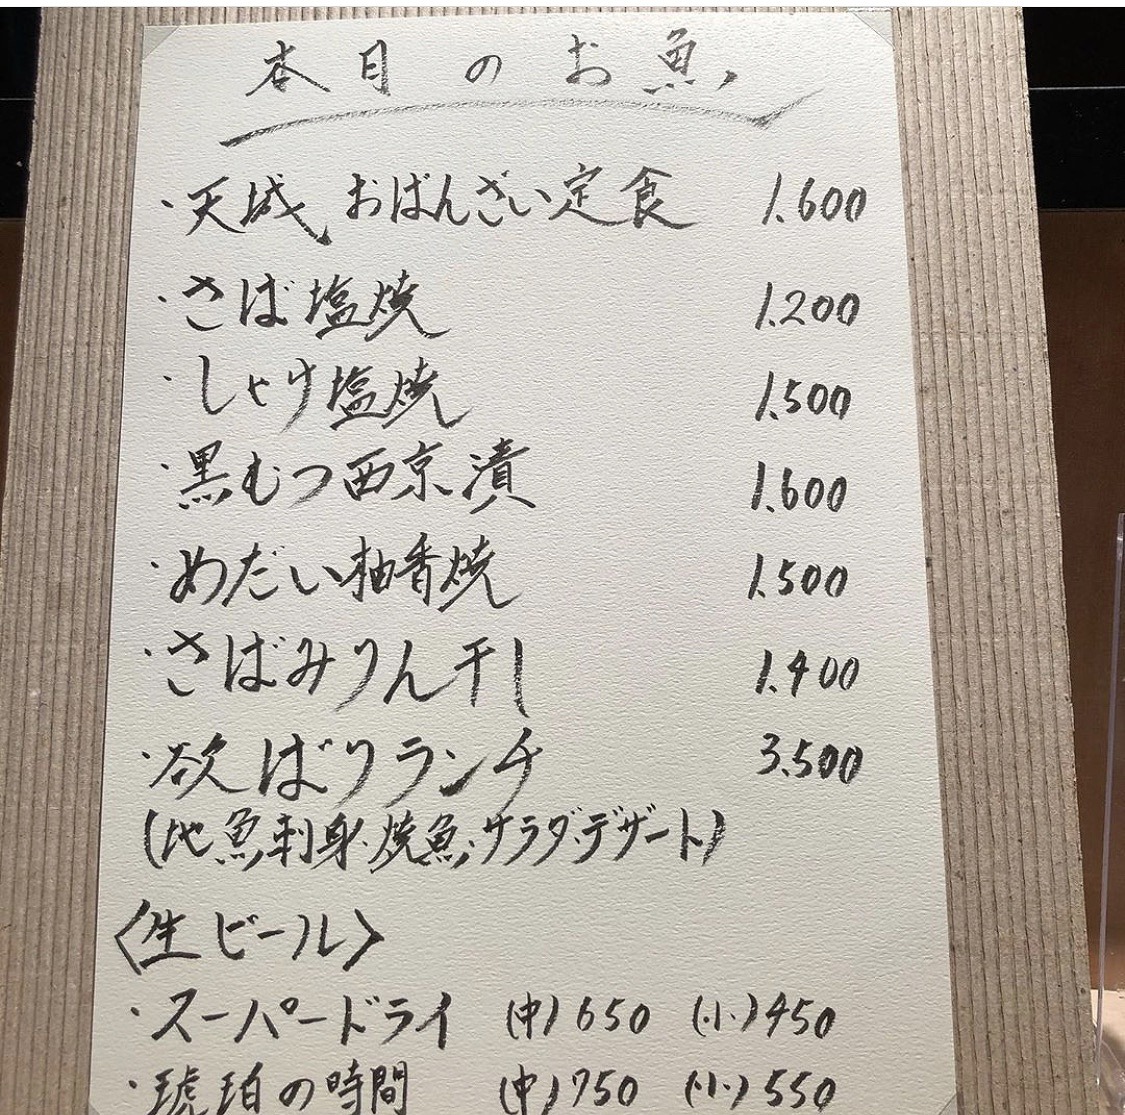 本日のお魚
・天城 おばんざい定食 1.600
・さば塩焼 1.200
・しゃけ塩焼 1.500
・黒むつ西京漬 1.600
・めだい柚香焼 1.500
・さばみりん干し 1.400
・欲ばりランチ 3.500
(地魚刺身・焼魚・サラダ・デザート)
〈生ビール〉
・スーパードライ (中)650 (小)450
・琥珀の時間 (中)750 (小)550